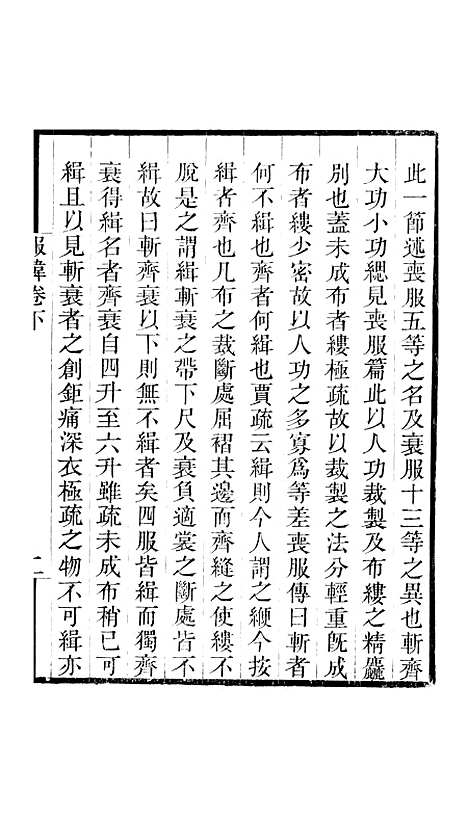 此一節述喪服五等之名及衰服十三等之異也斬齊
大功小功緦見喪服篇此以人功裁製及布縷之精麤
別也蓋未成布者縷極疏故以裁製之法分輕重既成
布者縷少密故以人功之多寡爲等差喪服傳曰斬者
何不緝也齊者何緝也賈疏云緝則今人謂之緶今按
緝者齊也凡布之裁斷處屈褶其邊而齊縫之使縷不
脫是之謂緝斬衰之帶下尺及衰負適裳之斷處皆不
緝故曰斬齊衰以下則無不緝者矣四服皆緝而獨齊
衰得緝名者齊衰自四升至六升雖疏未成布稍已可
緝且以見斬衰者之創鉅痛深衣極疏之物不可緝亦
服葦卷下
二